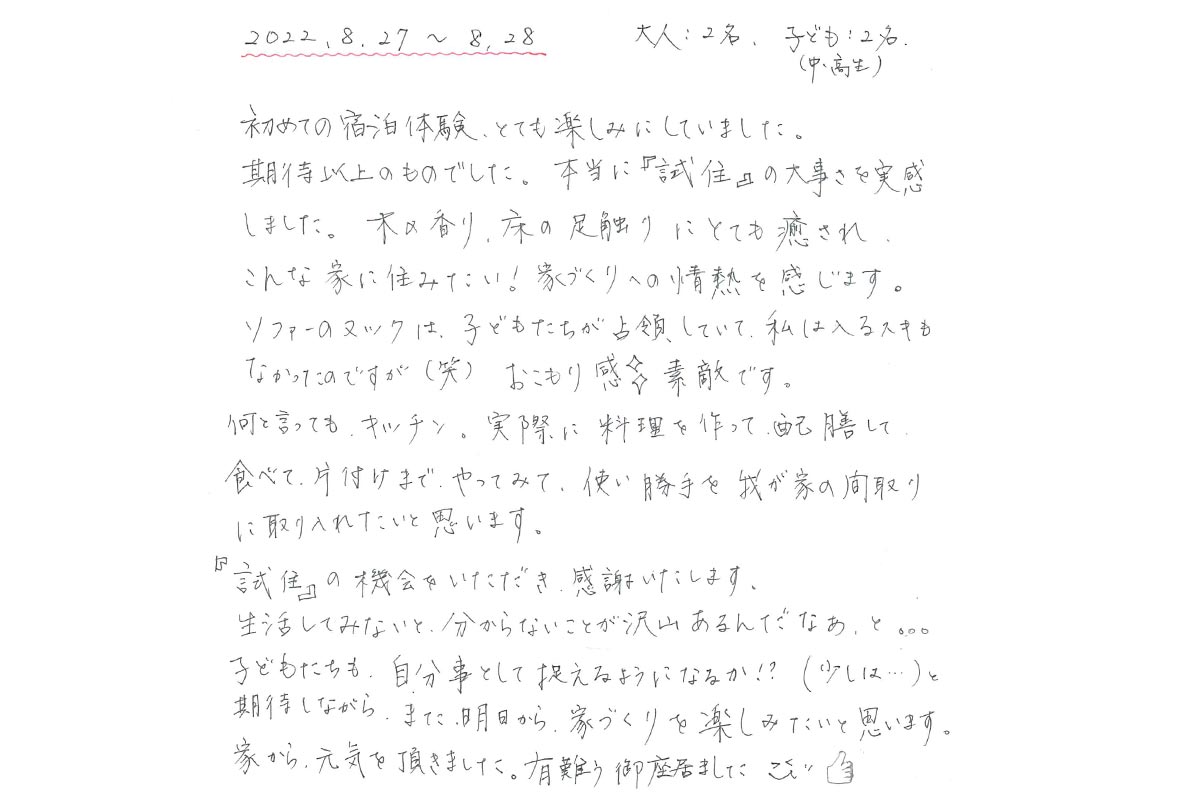 2022.8.27～8.28　大人：2名、子ども：2名.
(中・高生)
初めての宿泊体験、とても楽しみにしていました。
期待以上のものでした。本当に『試住』の大事さを実感
しました。木の香り、床の足触りにとても癒され、
こんな家に住みたい！家づくりへの情熱を感じます。
ソファーのヌックは、子どもたちが占領していて、私は入るスキも
なかったのですが（笑）おこもり感✧素敵です。
何と言っても、キッチン。実際に料理を作って、配膳して、
食べて、片付けまで、やってみて、使い勝手を我が家の間取り
に取り入れたいと思います。
『試住』の機会をいただき、感謝いたします。
生活してみないと、分からないことが沢山あるんだなぁ、と。。。
子どもたちも、自分事として捉えるようになるか!?（少しは…）と
期待しながら、また、明日から、家づくりを楽しみたいと思います。
家から、元気を頂きました。有難う御座居ました